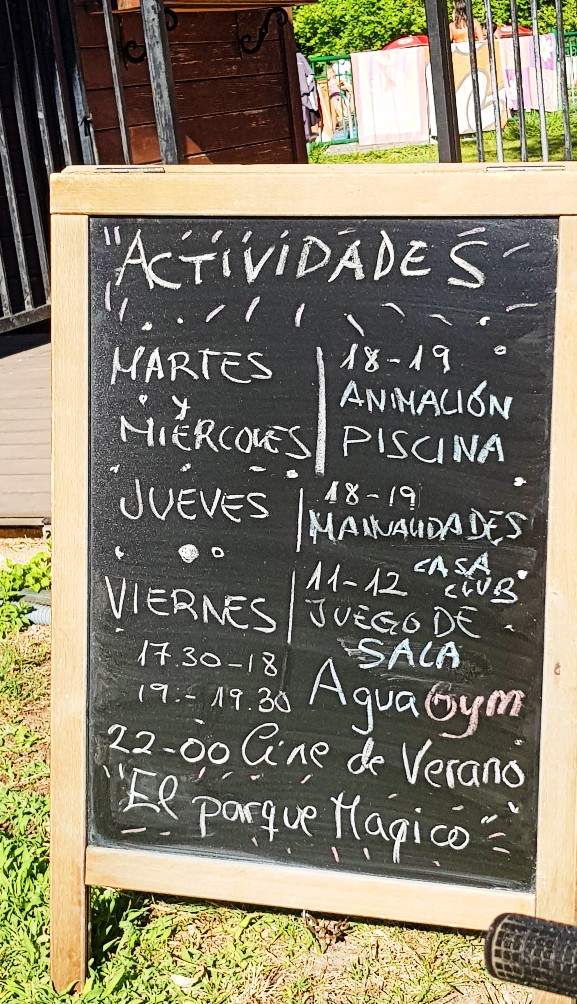 "ACTIVIDADES"
MARTES
Y
MIÉRCOLES
18-19
ANIMACIÓN
PISCINA
JUEVES
18-19
MAINALIDADES
CASA
CLUB
VIERNES
11-12
JUEGO DE
SALA
17.30-18
19.-19.30
Agua Gym
22-00 Cine de Verano
"El parque Magico"